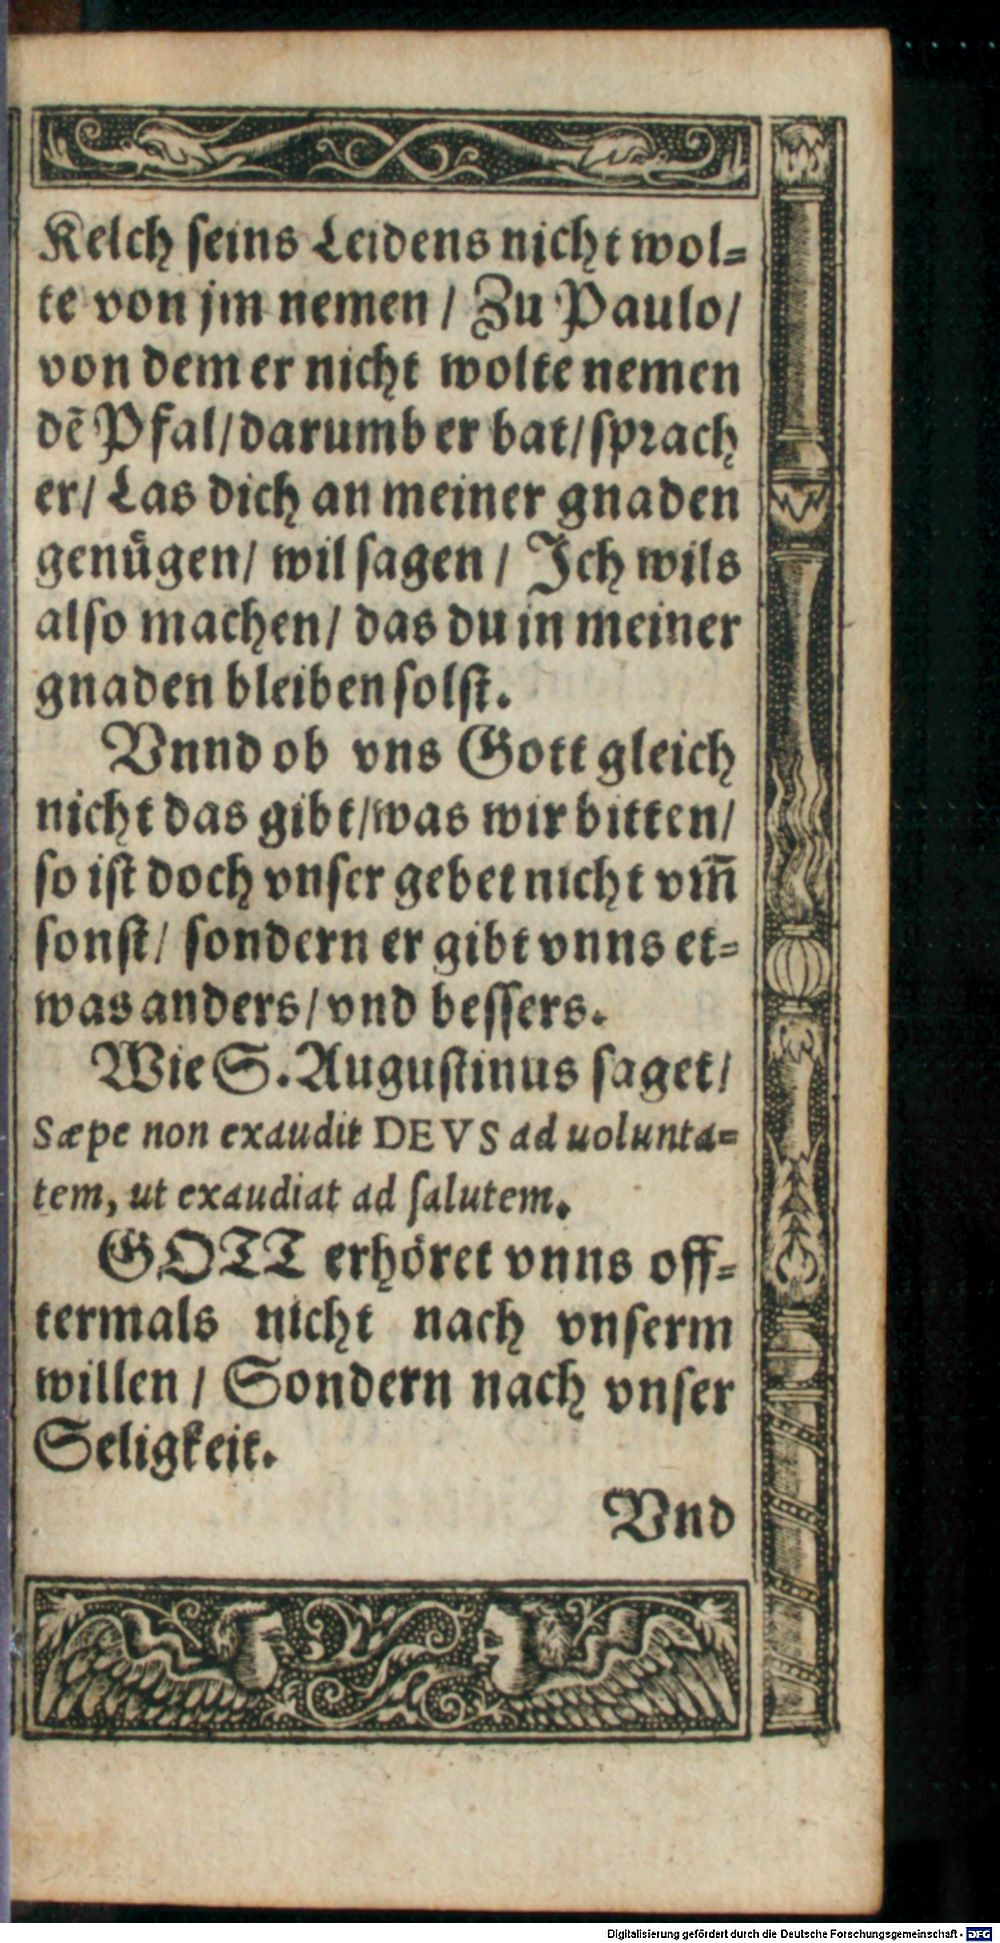 Kelch ſeins Leidens nicht wol⸗
te von jm nemen / Zu Paulo /
von dem er nicht wolte nemen
dē Pfal / darumb er bat / ſprach
er / Las dich an meiner gnaden
genuͤgen / wil ſagen / Ich wils
alſo machen / das du in meiner
gnaden bleiben ſolſt.
Vnnd ob vns Gott gleich
nicht das gibt / was wir bitten /
ſo iſt doch vnſer gebet nicht vm̄
ſonſt / ſondern er gibt vnns et⸗
was anders / vnd beſſers.
Wie S. Auguſtinus ſaget /
Sæpe non exaudit DEVS ad uolunta⸗
tem, ut exaudiat ad ſalutem.
GOTT erhoͤret vnns off⸗
termals nicht nach vnſerm
willen / Sondern nach vnſer
Seligkeit.
Vnd
Digitalisierung gefördert durch die Deutsche Forschungsgemeinschaft - DFG